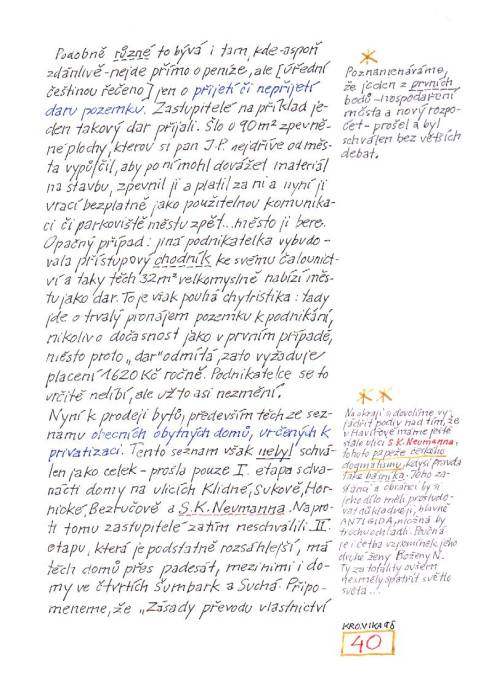 Podobně různé to bývá i tam, kde aspoň
zdánlivě nejde přímo o peníze, ale [úřední
češtinou řečeno] jen o přijetí či nepřijetí
daru pozemku. Zastupitelé na příklad je-
den takový dar přijali. Šlo o 90 m² zpevně-
né plochy, kterou si pan J.P. nejdříve od měs-
ta vypůjčil, aby po ní mohl dovážet materiál
na stavbu, zpevnil ji a platil za ni a nyní ji
vrací bezplatně jako použitelnou komunika-
ci či parkoviště městu zpět...město ji bere.
Opačný případ: jiná podnikatelka vybudo-
vala přístupový chodník ke svému čalounict-
ví a taky těch 32 m² velkomyslně nabízí měs-
tu jako dar. To je však pouhá chytristika: tady
jde o trvalý pronájem pozemku k podnikání,
nikoliv o dočasnost jako v prvním případě,
město proto „dar“ odmítá, zato vyžaduje
placení 1620 Kč ročně. Podnikatelce se to
určitě nelíbí, ale už to asi nezmění.
Nyní k prodeji bytů, především těch ze sez-
namu obecních obytných domů, určených k
privatizaci. Tento seznam však nebyl schvá-
len jako celek - prošla pouze I. etapa s dva-
nácti domy na ulicích Klidné, Sukově, Hor-
nické, Bezručově a S.K. Neumanna. Napro-
ti tomu zastupitelé zatím neschválili II.
etapu, která je podstatně rozsáhlejší, má
těch domů přes padesát, mezi nimi i do-
my ve čtvrtích Šumbark a Suchá. Připo-
meneme, že „Zásady převodu vlastnictví
*
Poznamenáváme,
že jeden z prvních
bodů - hospodaření
města a nový rozpo-
čet - prošel a byl
schválen bez větších
debat.
**
Na okraji si dovolíme vy-
jádřit podiv nad tím, že
v Havířově máme ještě
stále ulici S.K. Neumanna,
tohoto papeže českého
dogmatismu, kdysi pravda
také básníka. Jeho za-
stánci a obránci by si
jeho dílo měli prostudo-
vat důkladněji, hlavně
ANTIGIDA, možná by
trochu ochladli. Poučná
je i četba vzpomínek jeho
druhé ženy Boženy N.
Ty za totality ovšem
nesměly spatřit světlo
světa...!
KRONIKA 98
40